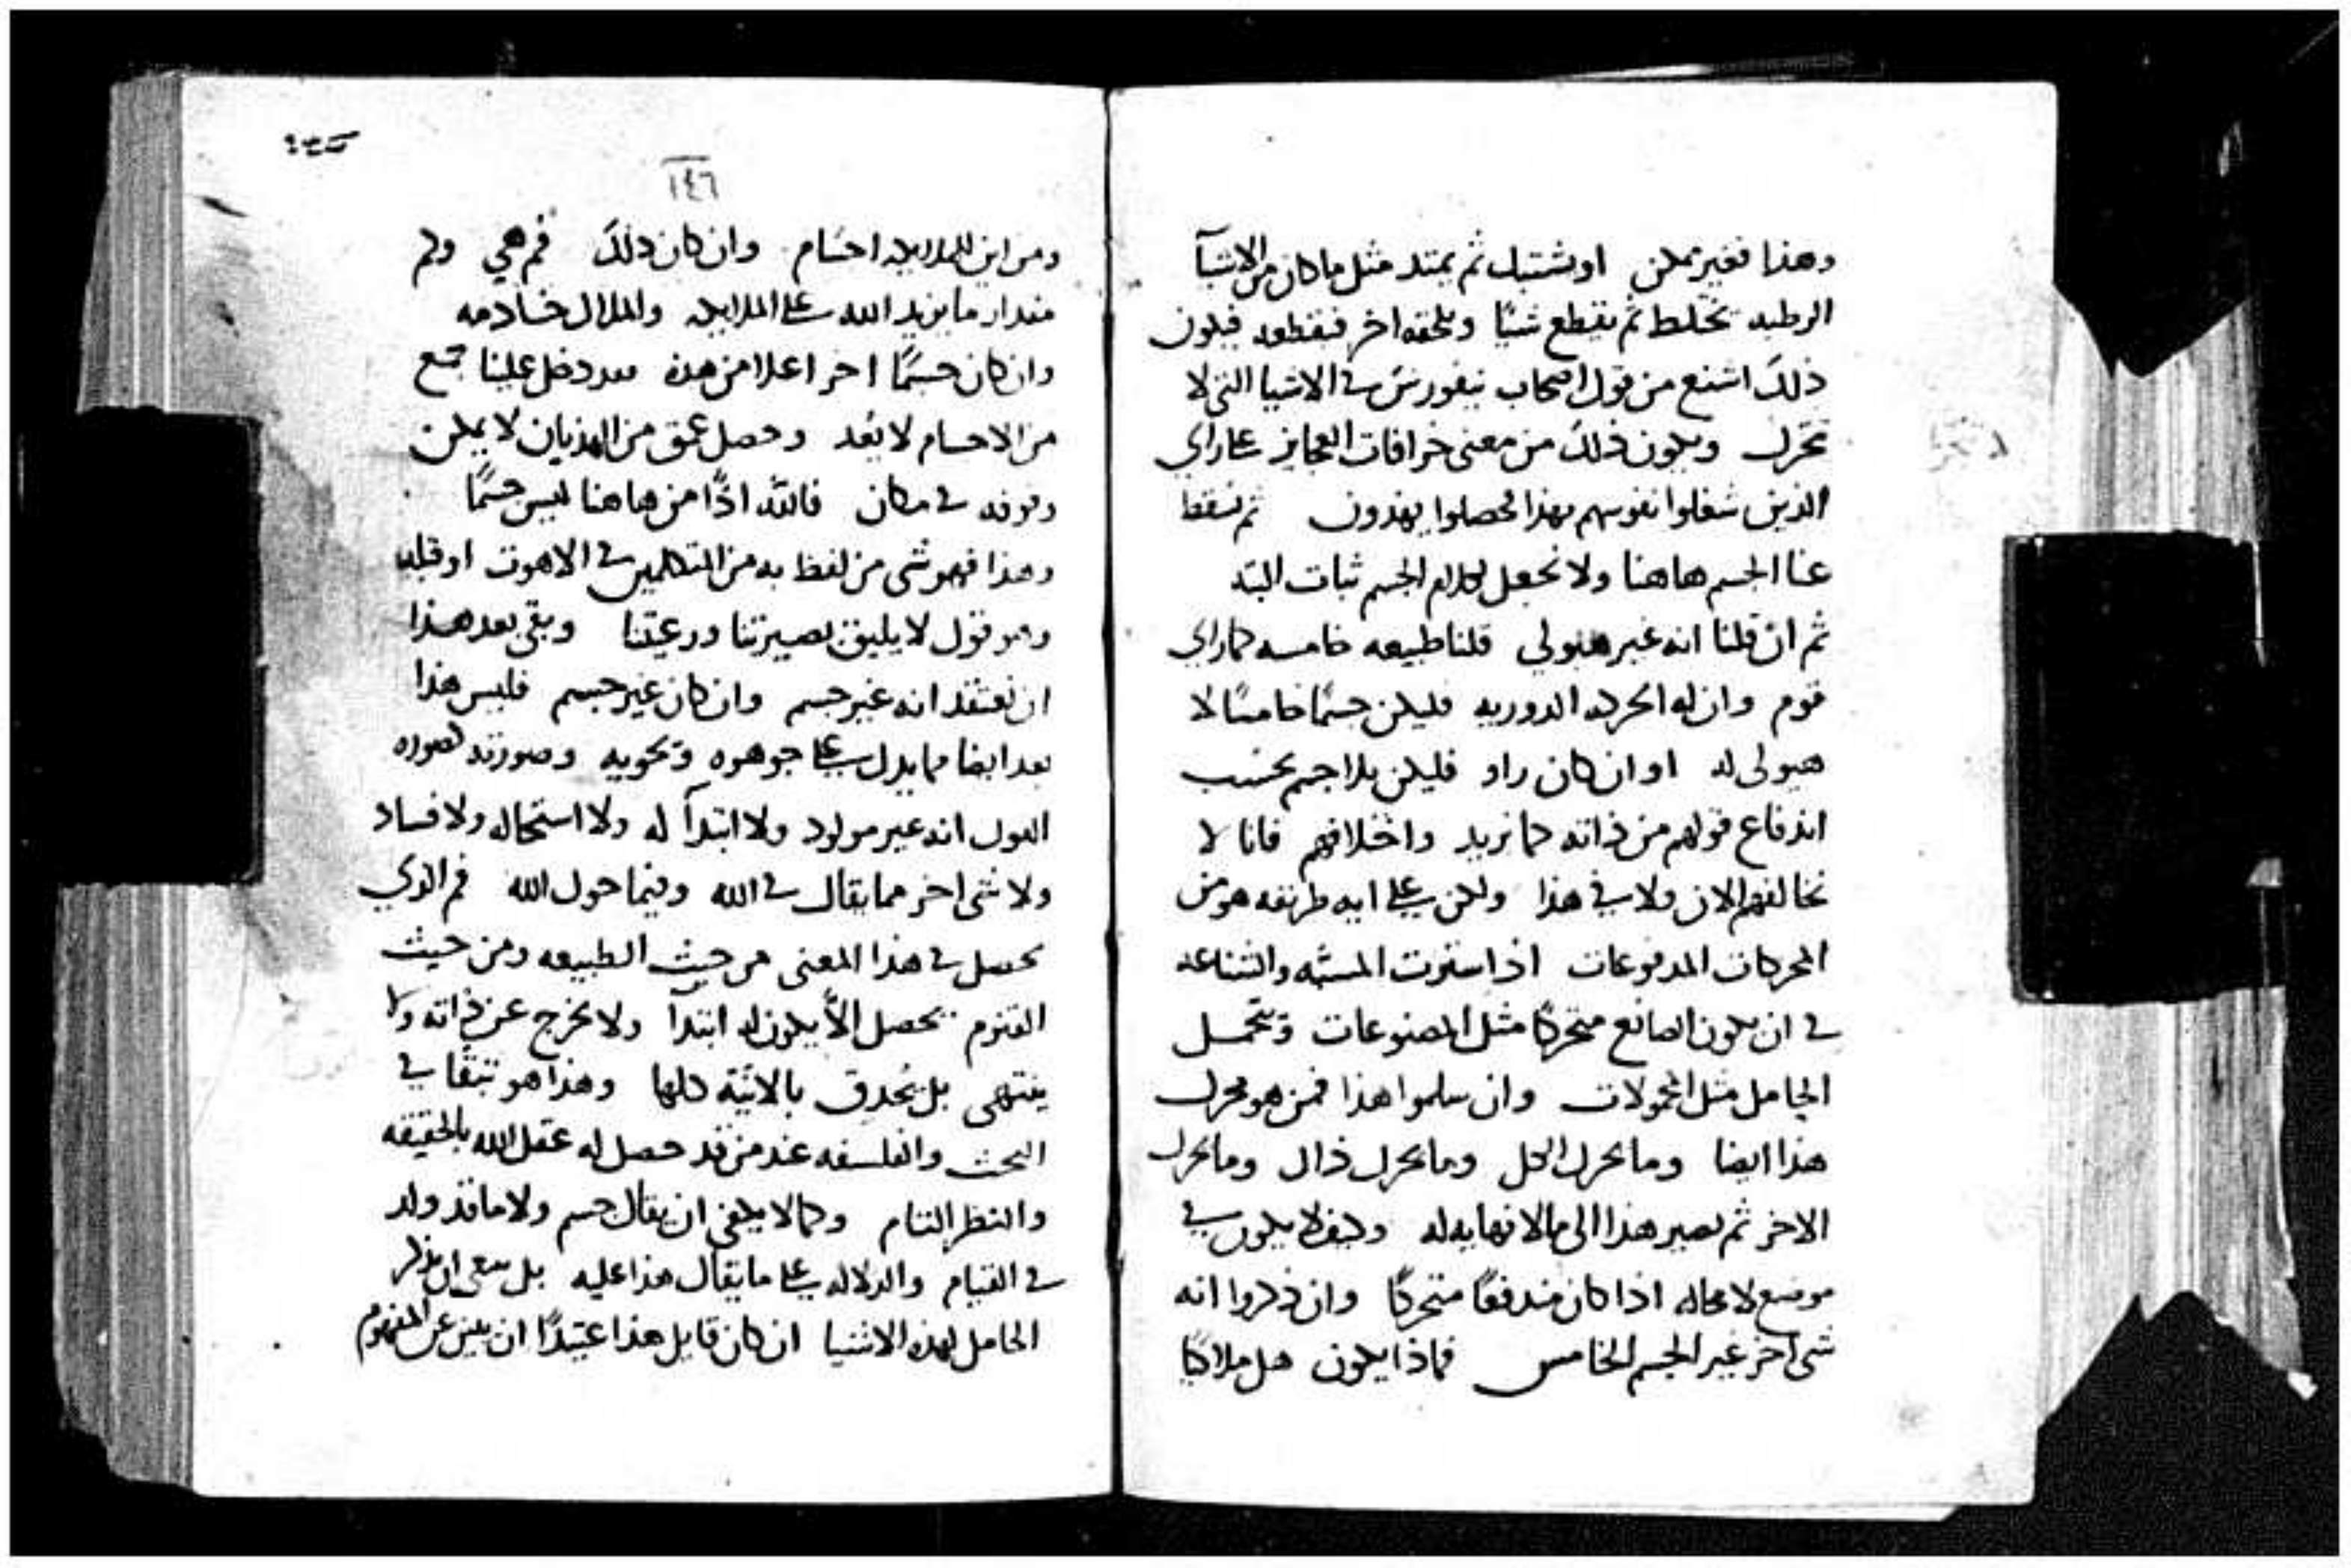 وهذا فغير ممكن او يشتبك ثم يمتد مثل ما كان من الاشيآ
الرطبه تختلط ثم يقطع شيئا ويلحقه اخر فيقطعه فيكون
ذلك اشنع من قول اصحاب في الاشيا التي لا
تتحرك ويكون ذلك من معنى خرافات العجايز على راي
الذين شغلوا نفوسهم بهذا فحصلوا يهذون ثم نسقط
عنا الجسم هاهنا ولا نجعل لكلام الجسم ثبات البته
ثم ان قلنا انه غير هيولي قلنا طبيعه خامسه كما راي
قوم وان له الحركه الدوريه فليكن جسمًا خامسًا لا
هيولى له او ان كان راو فليكن بلا جسم بحسب
اندفاع قولهم من ذاته كما نريد واختلافهم فانا لا
نخالفهم الان ولا في هذا ولكن على ايه طريقه هو من
المحركات المدفوعات اذا المسبه والشناعه
في ان يكون الصانع متحركًا مثل المصنوعات وتحمل
الحامل مثل المحمولات وان سلموا هذا فمن هو محرك
هذا ايضا وما يحرك الكل وما يحرك ذاك وما يحرك
الاخر ثم يصير هذا الى ما لا نهايه له وكيف لا يكون في
موضع لا محاله اذا كان مندفعًا متحركًا وان ذكروا انه
شى اخر غير الجسم الخامس فماذا يكون هل ملاكيًا
١٤٦
ومن اين الملايكه اجسام وان كان ذلك فمن هي وكم
مقدار ما يزيد الله على الملايكه والملاك خادمه
وان كان جسمًا اخر اعلا من هذه فقد دخل علينا جمع
من الاجسام لا يُعد وحصل عمق من الهذيان لا يمكن
وقوفه في مكان فالله اذًا من هاهنا ليس جسمًا
وهذا فهو شى من لفظ به من المتكلمين في الاهوت او قبله
وهو قول لا يليق بصيرتنا ورعيتنا وبقي بعد هذا
ان نعتقد انه غير جسم وان كان غير جسم فليس هذا
بعد ايضا مما يدل على جوهره وتحويه وصورته كصوره
القول انه غير مولود ولا ابتدآ له ولا استحاله ولا فساد
ولا شى اخر مما يقال في الله وفيما حول الله فم الذي
يحصل في هذا المعنى من حيث الطبيعه ومن حيث
القنوم يحصل الاّ يكون له ابتدآ ولا يخرج عن ذاته ولا
ينتهى بل يُحدق بالانيّة كلها وهذا هو تبقّا في
البحث والفلسفه عند من قد حصل له عقل الله بالحقيقه
والنظر التام وكما لا يكفى ان يقال جسم ولا ما قد ولد
في القيام والدلاله على ما يقال هذا عليه بل ينبغي ان يذكر
الحامل لهذه الاشيا ان كان قايل هذا عتيدًا ان يبين عن المفهوم